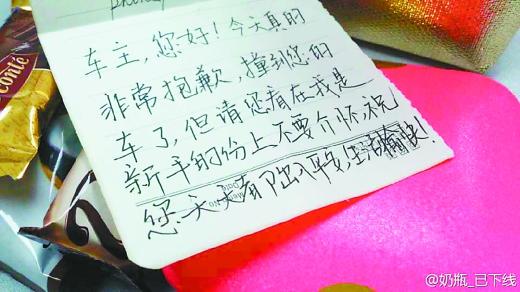 conté
车主,您好!今天真的
非常抱歉,撞到您的
车了,但请您看在我是
新手的份上不要介怀,祝
您天天 出入平安,生活愉快!
@奶瓶_已下线